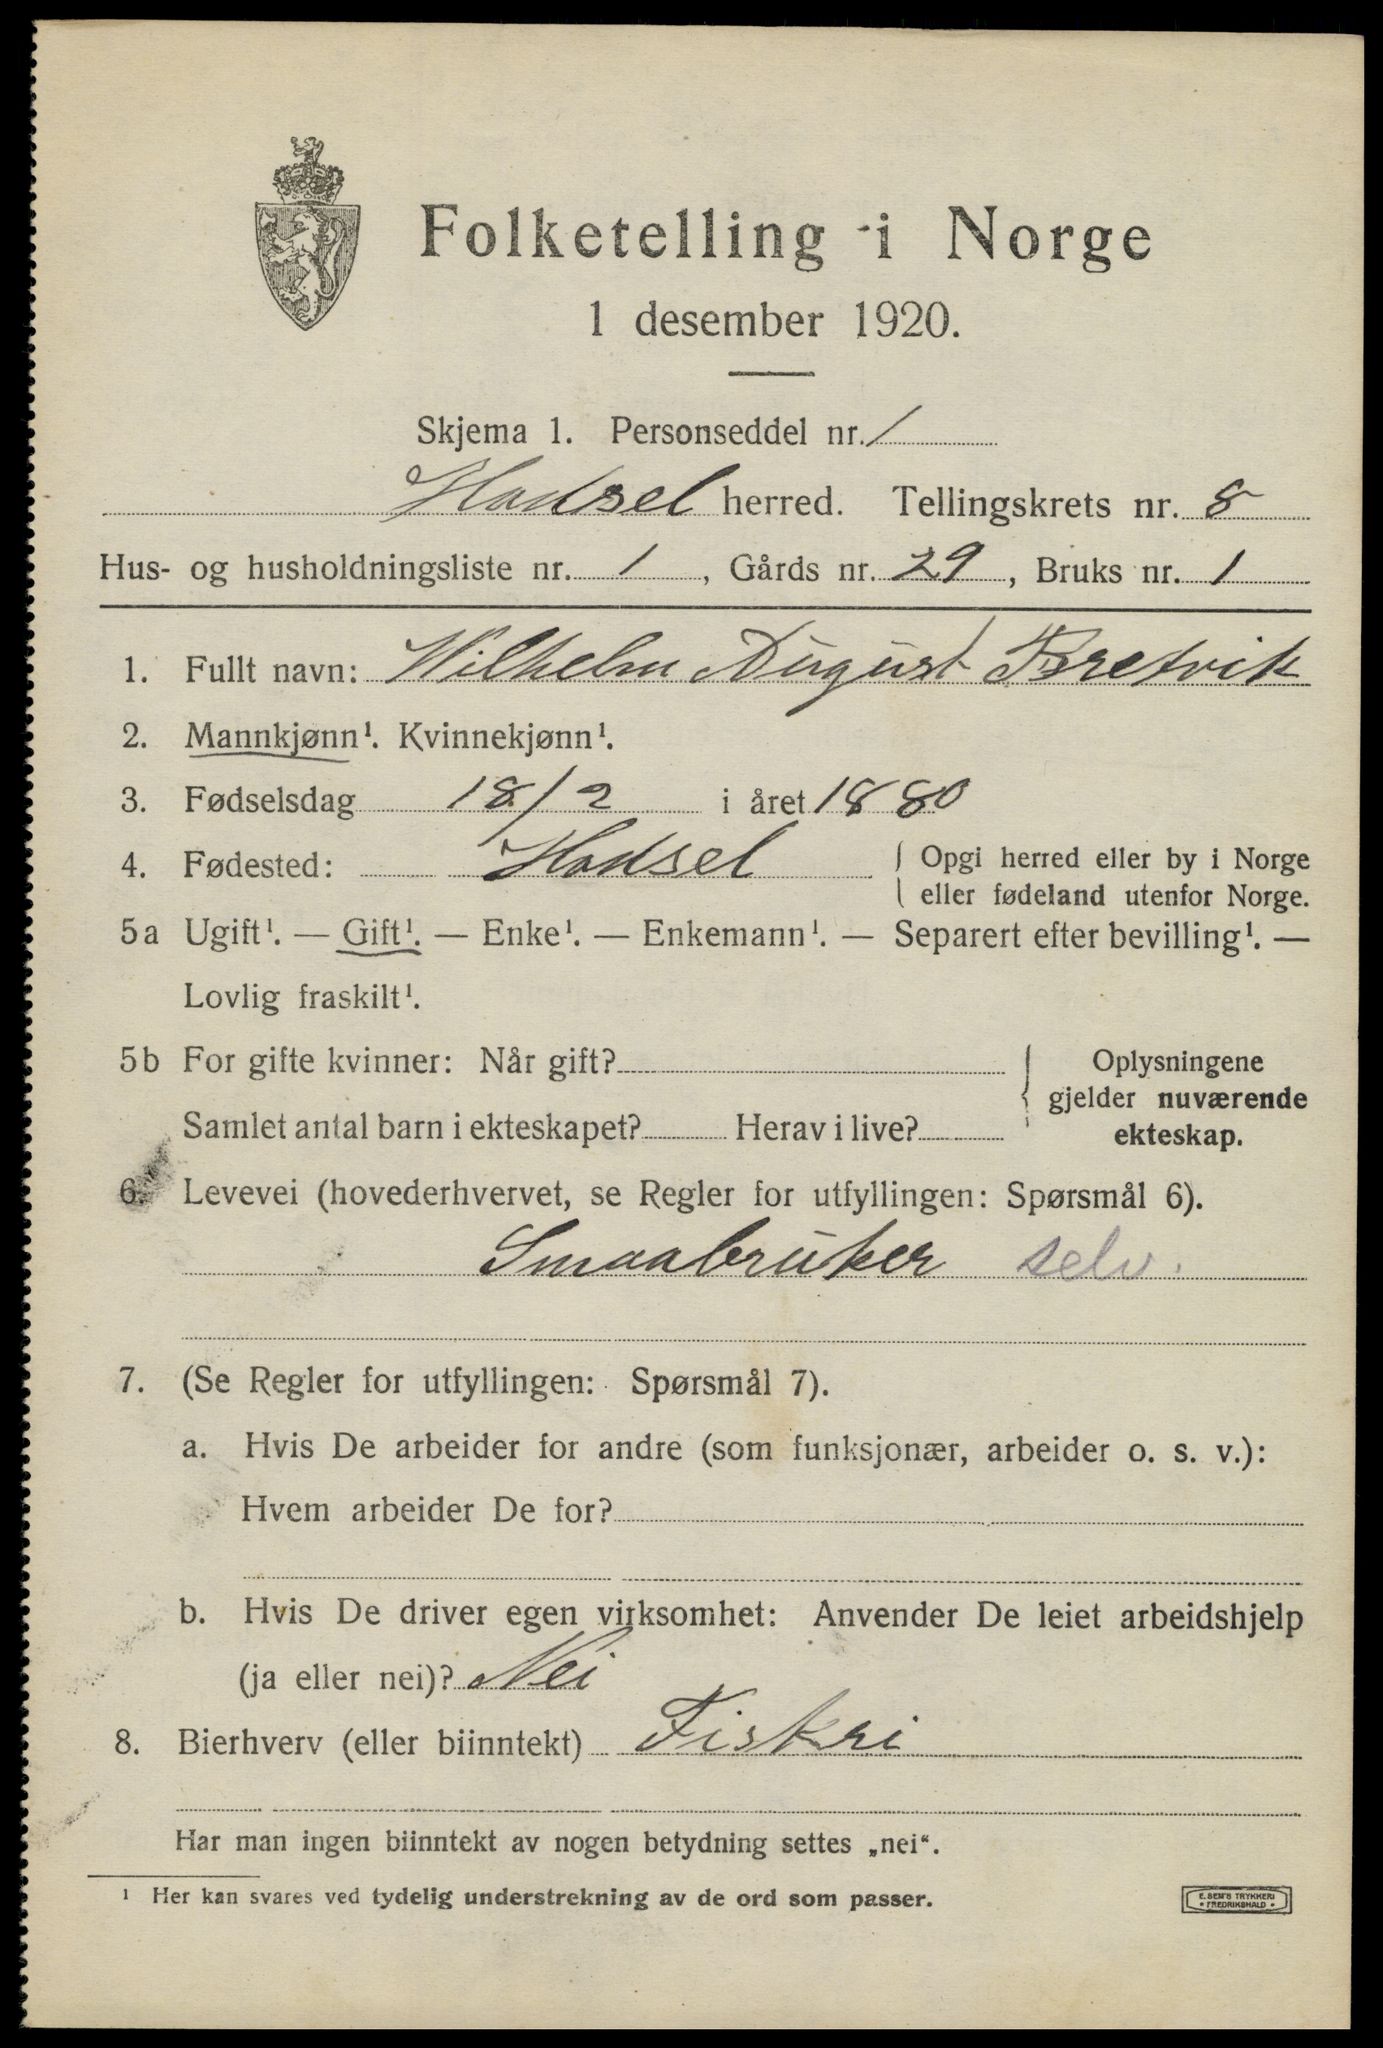 Folketelling i Norge
1 desember 1920.
Skjema 1. Personseddel nr. 1
Hadsel herred. Tellingskrets nr. 8
Hus- og husholdningsliste nr. 1, Gårds nr. 29, Bruks nr. 1
1. Fullt navn: Wilhelm August Bretvik
2. Mannkjønn¹. Kvinnekjønn¹.
3. Fødselsdag 18/2 i året 1880
4. Fødested: Hadsel { Opgi herred eller by i Norge
eller fødeland utenfor Norge.
5a Ugift¹. — Gift¹. — Enke¹. — Enkemann¹. — Separert efter bevilling¹. —
Lovlig fraskilt¹.
5b For gifte kvinner: Når gift? { Oplysningene
gjelder nuværende
Samlet antal barn i ekteskapet? Herav i live? ekteskap.
6. Levevei (hovederhvervet, se Regler for utfyllingen: Spørsmål 6).
Smaabruker selv.
7. (Se Regler for utfyllingen: Spørsmål 7).
a. Hvis De arbeider for andre (som funksjonær, arbeider o. s. v.):
Hvem arbeider De for?
b. Hvis De driver egen virksomhet: Anvender De leiet arbeidshjelp
(ja eller nei)? Nei
8. Bierhverv (eller biinntekt) Fiskeri
Har man ingen biinntekt av nogen betydning settes „nei“.
¹ Her kan svares ved tydelig understrekning av de ord som passer.
E. SEM'S TRYKKERI
• FREDRIKSHALD •